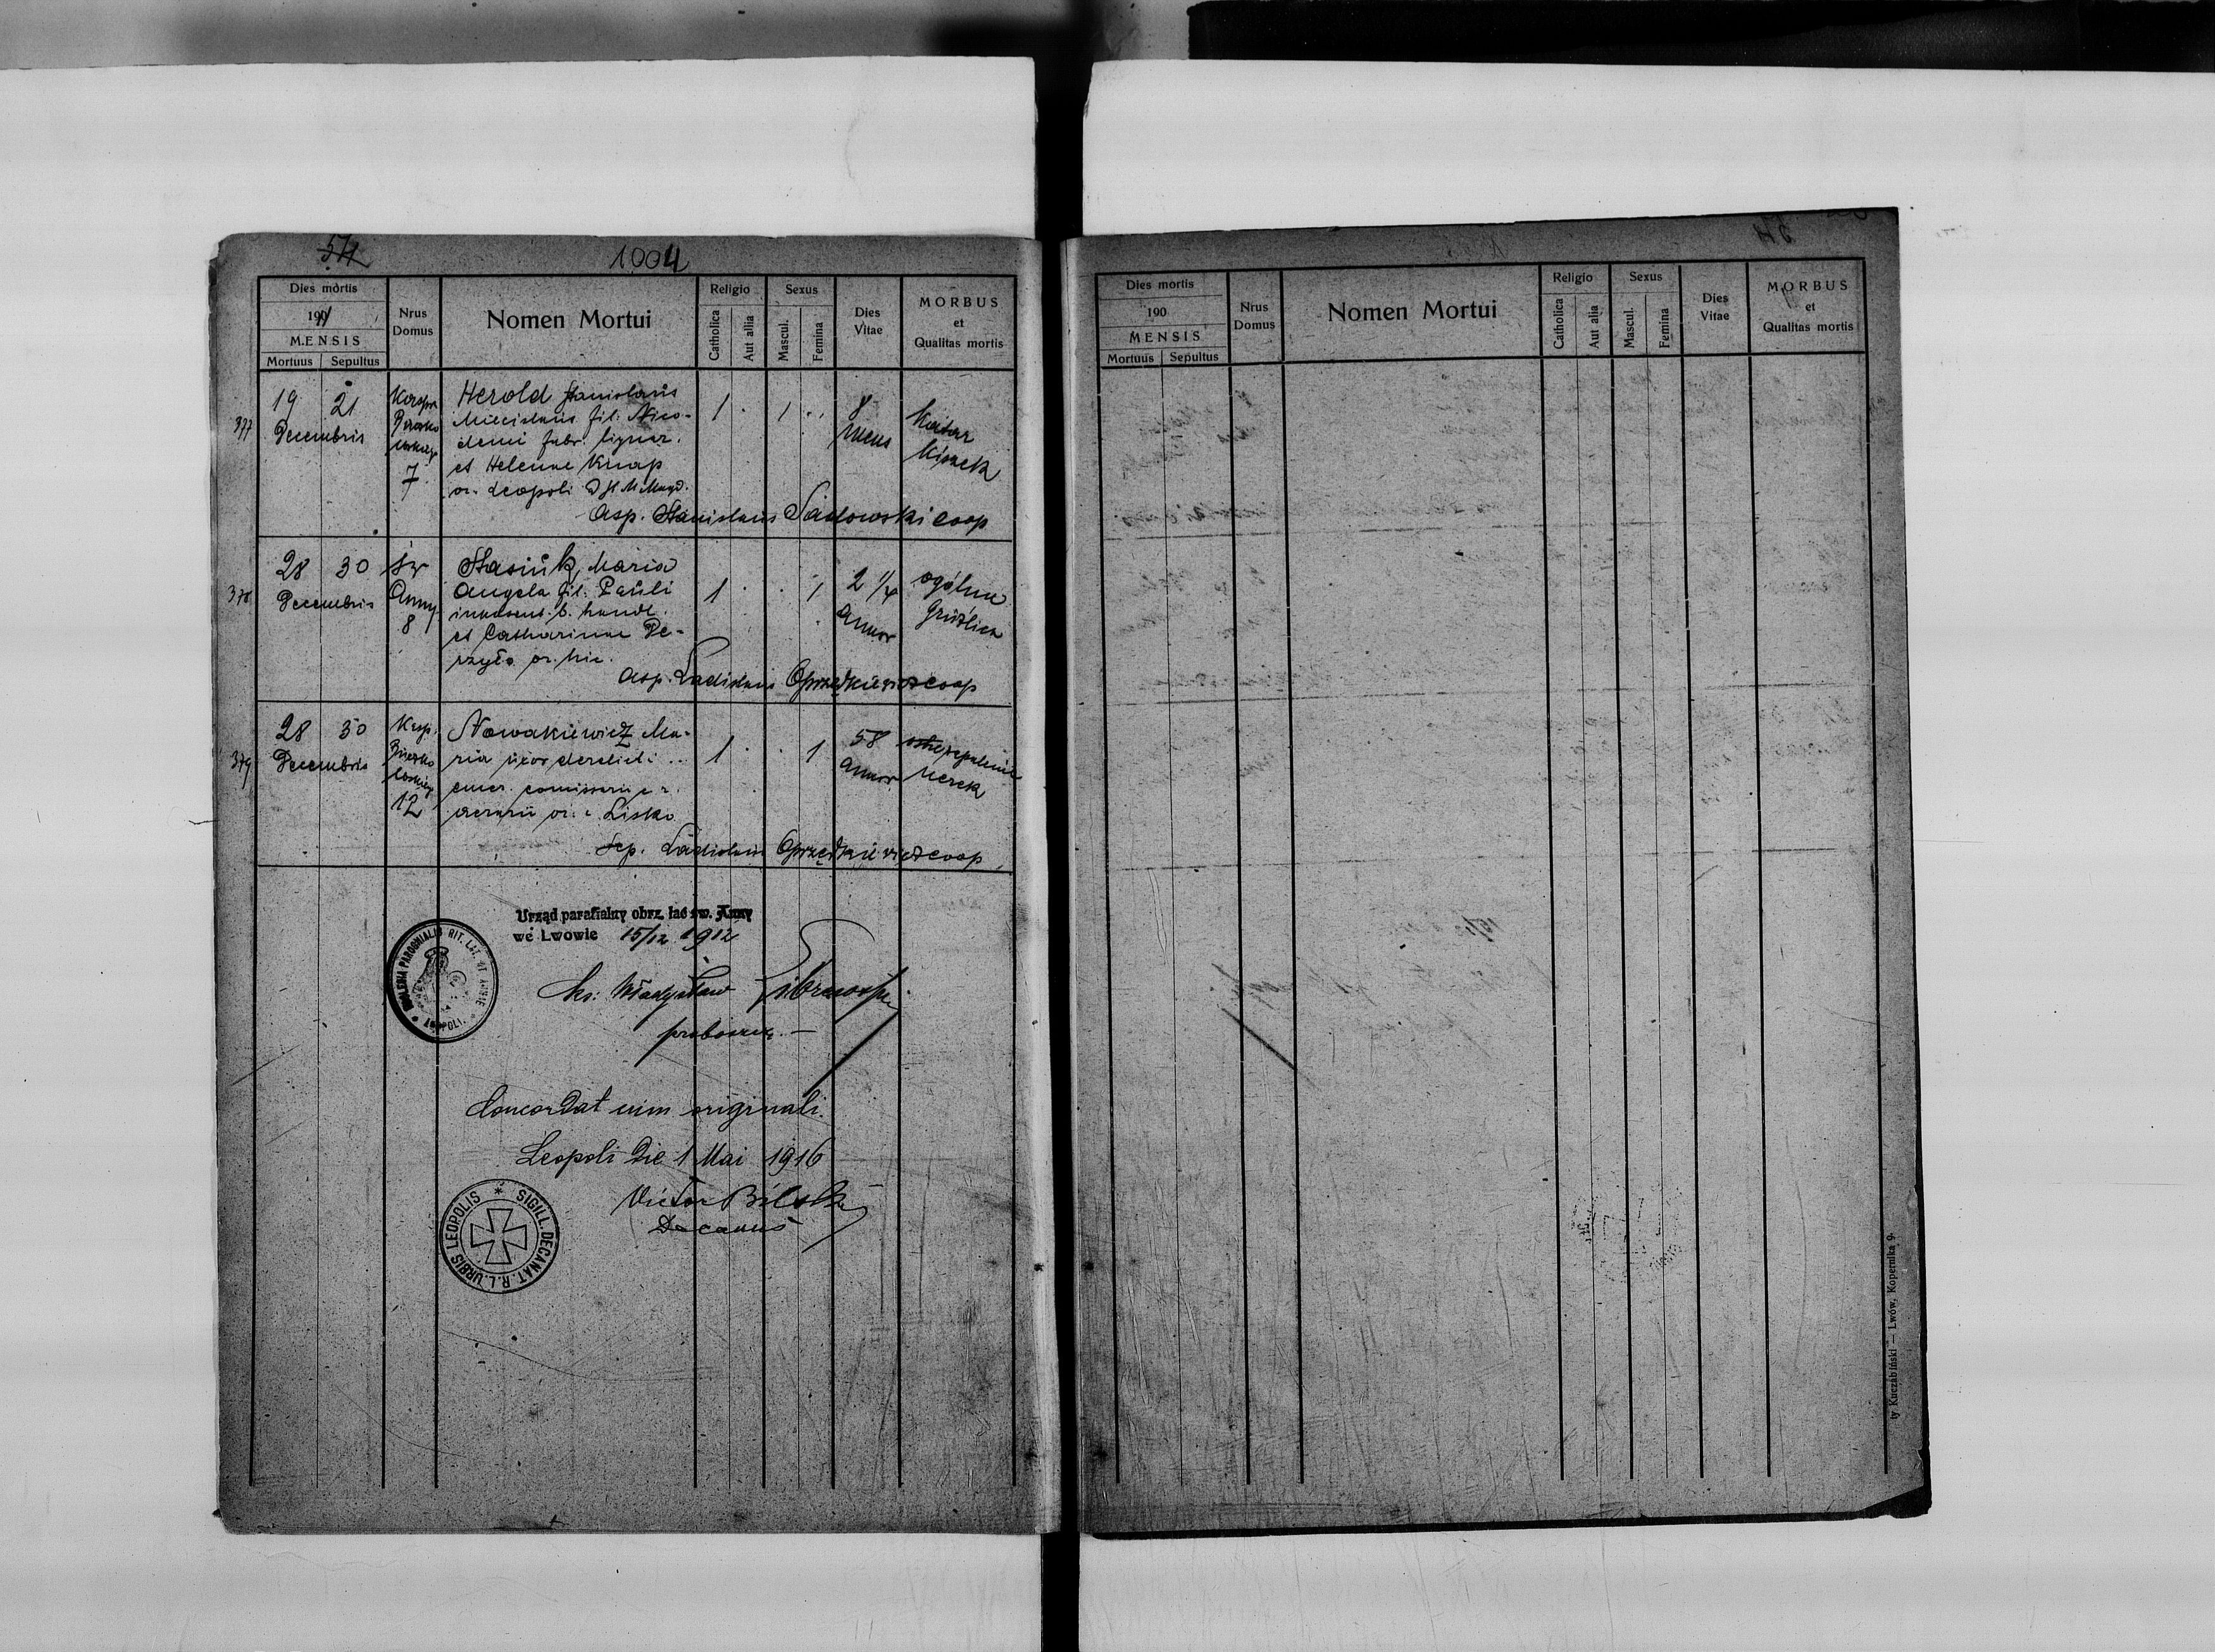 1004
Dies mortis
1911
MENSIS
Mortuus Sepultus
Nrus
Domus
Nomen Mortui
Religio
Catholica
Aut allia
Sexus
Mascul.
Femina
Dies
Vitae
MORBUS
et
Qualitas mortis
377
19 21
Decembris
7
Herold Stanislaus
Miecislaus fil. Nico-
demi fabr. lignar.
et Helenae Knap
or. Leopoli
1 1
8
mens
Katar
kiszek
Asp. Stanislaus Sadowski coop
378
28 30
Decembris
Św
Anny
8
Stasiuk Maria
Angela fil. Pauli
inkasent. b. handl.
et Catharinae Pe-
szyło or. hic.
1 1
2 1/4
annor
ogólna
gruźlica
Asp. Ladislaus Oprzędkiewicz coop
379
28 30
Decembris
12
Nowakiewicz Ma-
ria uxor derelicti
emer. comissarii c. r.
aerarii or. Lisko
1 1
58
annor
zapalenie
nerek
Sep. Ladislaus Oprzędkiewicz coop
Urząd parafialny obrz. łać św. Anny
we Lwowie 15/12 1912
PAROCHIALIS RIT. LAT. ST ANNAE
LEOPOLI
ks: Władysław
proboszcz.
Concordat cum originali.
Leopoli die 1 Mai 1916
Victor Bilski
Decanus
SIGILL. DECANAT. R. L. URBIS LEOPOLIS
Dies mortis
190
MENSIS
Mortuus Sepultus
Nrus
Domus
Nomen Mortui
Religio
Catholica
Aut alia
Sexus
Mascul.
Femina
Dies
Vitae
MORBUS
et
Qualitas mortis
ty Kuczabiński — Lwów, Kopernika 9.